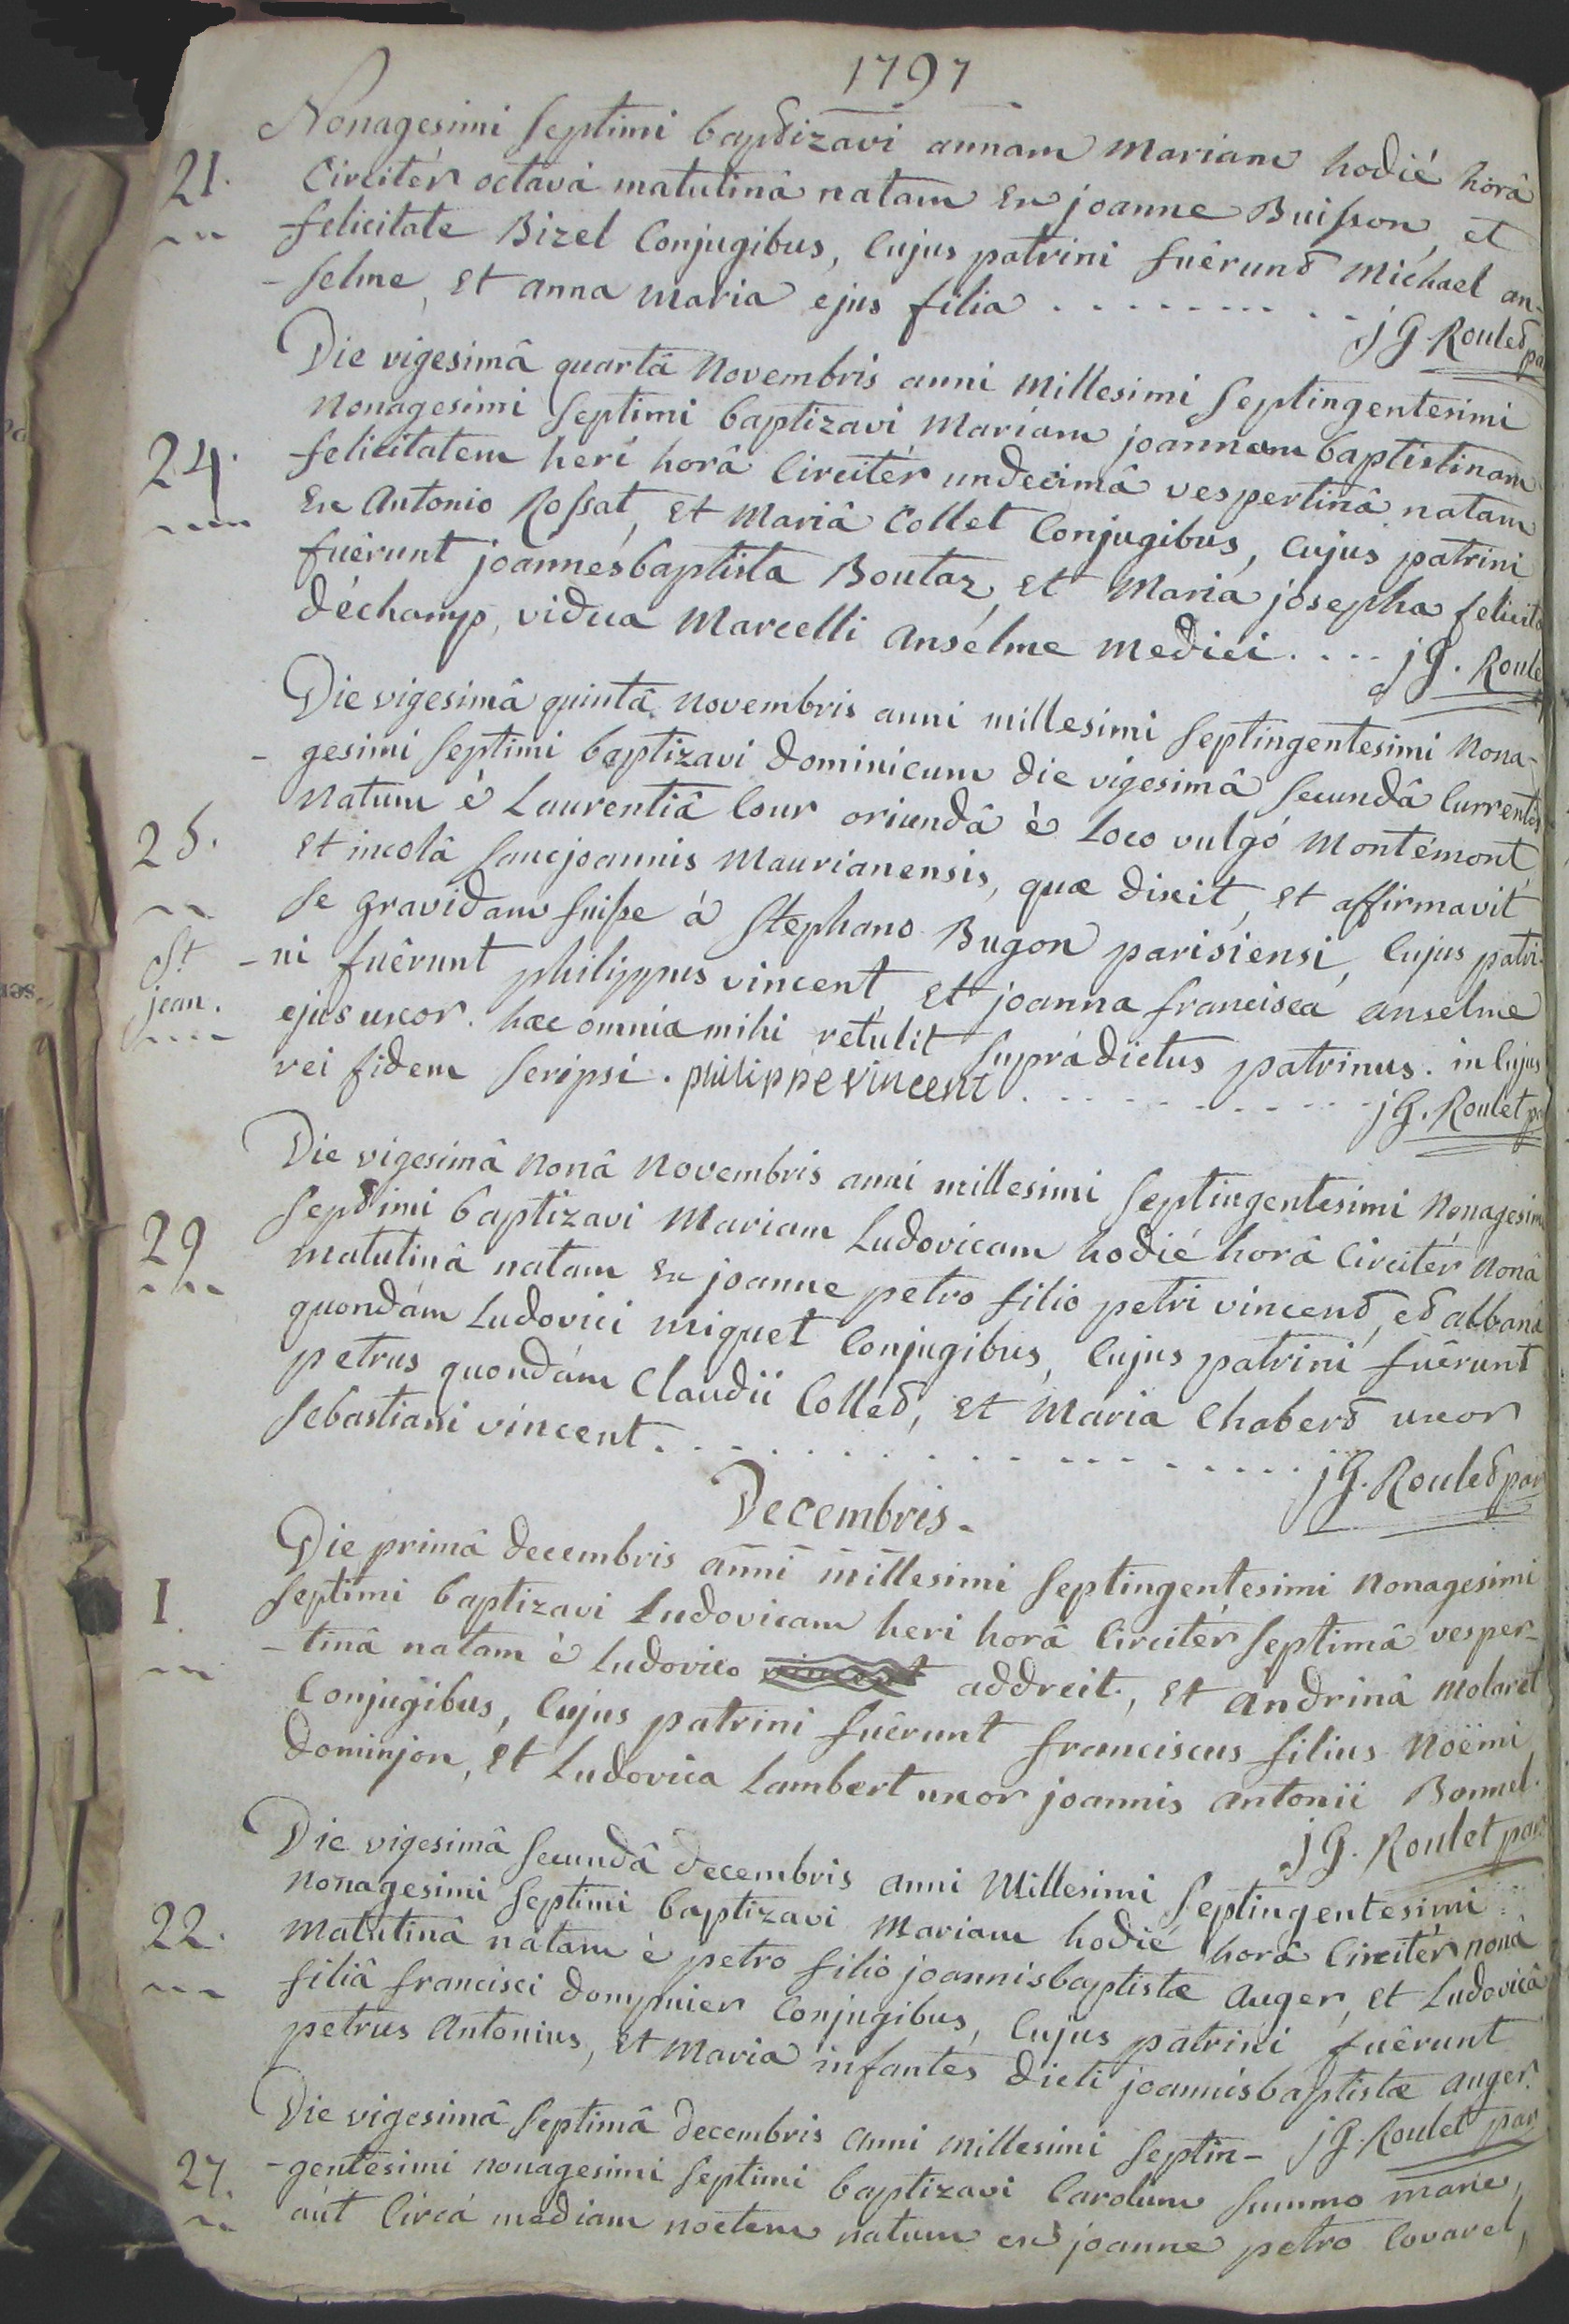 1797
Nonagesimi septimi baptizavi annam Mariam hodié horâ
21. Circitér octavâ matutinâ natam ex joanne Buisson, et
felicitate Bizel Conjugibus, Cujus patrini fuêrunt Michael an-
-selme, et anna Maria ejus filia . . . . . . . . . . j G Roulet pa
Die vigesimâ quartâ Novembris anni Millesimi septingentesimi
Nonagesimi septimi baptizavi Mariam joannam baptistinam
24. felicitatem heri horâ Circitér undecimâ vespertinâ natam
Ex Antonio Rossat, et Mariâ Collet Conjugibus, Cujus patrini
fuêrunt joannésbaptista Boutaz, et Maria josepha felicita
déchamp, vidua Marcelli Anselme Medici . . . . j G. Roule
Die vigesimâ quintâ Novembris anni millesimi septingentesimi Nona-
-gesimi septimi baptizavi dominicum die vigesimâ secundâ Currentis
25. Natum é Laurentiâ Cour oriundâ é Loco vulgó Montémont,
et incolâ sancjoannis Maurianensis, quæ dixit, et affirmavit
se gravidam fuisse á Stephano Bugon parisiensi, Cujus patri-
St jean. -ni fuêrunt philippus vincent, et joanna francisca anselme
ejus uxor. hæc omnia mihi retulit suprádictus patrinus. in Cujus
rei fidem scripsi. philippe vincent . . . . . . . . . . . j G. Roulet pa
Die vigesimâ Nonâ Novembris anni millesimi septingentesimi Nonagesimi
septimi baptizavi Mariam Ludovicam hodié horâ Circitér Nonâ
29 matutinâ natam ex joanne petro filio petri vincent, et albanâ
quondám Ludovici Miquet Conjugibus, Cujus patrini fuêrunt
petrus quondám Claudii Collet, et Maria Chabert uxor
sebastiani vincent . . . . . . . . . . . . . . . . . j G. Roulet par
Decembris.
Die primâ decembris anni millesimi septingentesimi Nonagesimi
I. septimi baptizavi Ludovicam heri horâ Circitér septimâ vesper-
-tinâ natam é Ludovico vincent addreit, et Andrinâ Molaret
Conjugibus, Cujus patrini fuêrunt franciscus filius Noëmi
dominjon, et Ludovica Lambert uxor joannis antonii Bonnel.
j G. Roulet par
Die vigesimâ secundâ decembris anni Millesimi septingentesimi
Nonagesimi septimi baptizavi Mariam hodié horâ Circitér nonâ
22. Matutinâ natam é petro filio joannisbaptistæ Auger, et Ludovicâ
filiâ francisci dompnier Conjugibus, Cujus patrini fuêrunt
petrus Antonius, et Maria infantes dicti joannisbaptistæ Auger.
j G. Roulet par
Die vigesimâ septimâ decembris anni millesimi septin-
27. -gentesimi nonagesimi septimi baptizavi Carolum summo mane,
aút Circá mediam noctem natum ex joanne petro Covarel,